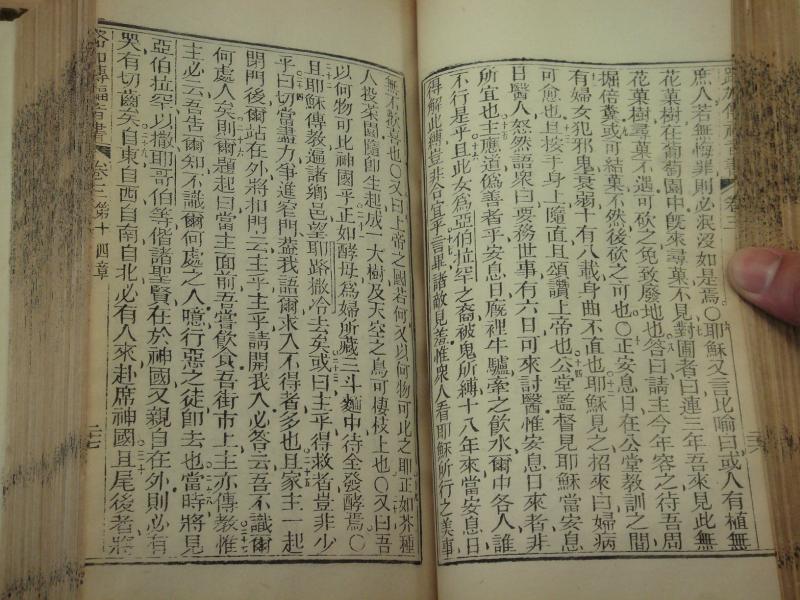 庶人若無悔罪則必泯沒如是焉〇耶穌又言比喻曰或人有植無
花菓樹在葡萄園中旣來尋菓不見對圃者曰連三年吾來見此無
花菓樹尋菓不遇可砍之免致廢地也答曰請主今年容之待吾周
掘倍糞或可結菓不然後砍之可也〇正安息日在公堂教訓之間
有婦女犯邪鬼衰弱十有八載身曲不直也耶穌見之招來曰婦病
可愈也且按手身上隨直且頌讚上帝也公堂監督見耶穌當安息
日醫人怒然語衆曰要務世事有六日可來討醫惟安息日來者非
所宜也主應道僞善者乎安息日廐裡牛驢牽之飲水爾中各人誰
不行是乎且此女爲亞伯拉罕之裔被鬼所縛十八年來當安息日
得解此縛豈非合宜乎言畢諸敵見羞惟衆人看耶穌所行之美事
無不歡喜也〇又曰上帝之國若何又以何物可比之耶正如芥種
人投菜園隨卽生起成一大樹及天空之鳥可棲枝上也〇又曰吾
以何物可比神國乎正如酵母爲婦所藏三斗麵中待全發酵焉〇
且耶穌傳教遍諸鄉邑望耶路撒冷去矣或曰主乎得救者豈非少
乎曰切當盡力爭進窄門蓋我語爾求入不得者多也且家主一起
閉門後爾站在外將扣門云主乎主乎請開我入必答云吾不識爾
何處人矣則爾題起曰當主面前吾嘗飲食吾街市上主亦傳教惟
主必云吾告爾知不識爾何處之人噫行惡之徒卽去也當時將見
亞伯拉罕以撒耶哥伯等偕諸聖賢在於神國又親自在外則必有
哭有切齒矣自東自西自南自北必有人來赴席神國且尾後者將
路加傳福音書 卷三 第十四章 二七